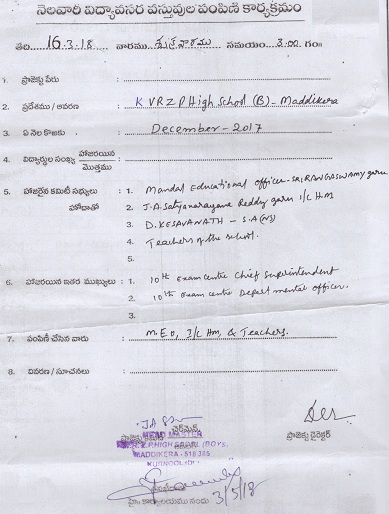 నెలవారి విద్యావసర వస్తువుల పంపిణి కార్యక్రమం
తేది. 16.3.18 వారము శుక్రవారము సమయం 3.00 గం
1. ప్రాజెక్టు పేరు
2. ప్రదేశము / ఆవరణ K VRZP High School (B) - Maddikera
3. ఏ నెల కొఱకు December - 2017
4. విద్యార్థుల సంఖ్య హాజరయిన మొత్తము
5. హాజరైన కమిటి సభ్యులు 1. Mandal Educational Officer - SRI RANGASWAMY garu
హోదాతో 2. J.A. Satyanarayana Reddy garu I/C H.M
3. D. KESAVANATH - S.A (NS)
4. Teachers of the school.
5.
6. హాజరయిన ఇతర ముఖ్యులు : 1. 10th Exam centre Chief Superintendent
2. 10th Exam centre Departmental officer.
3.
7. పంపిణీ చేసిన వారు M.E.O, I/C Hm, & Teachers.
8. వివరణ / సూచనలు
ఛైర్మెన్
ప్రాజెక్టు డైరెక్టర్
HEAD MASTER
Z.P.HIGH SCHOOL (BOYS)
MADDIKERA - 518 385
KURNOOL (Dt)
కార్యాలయము నందు 3/5/18